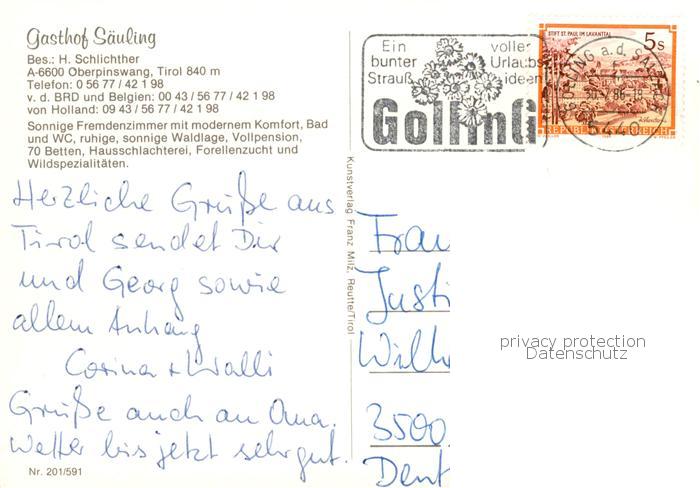 Gasthof Säuling
Bes.: H. Schlichther
A-6600 Oberpinswang, Tirol 840 m
Telefon: 0 56 77 / 42 1 98
v. d. BRD und Belgien: 00 43 / 56 77 / 42 1 98
von Holland: 09 43 / 56 77 / 42 1 98
Sonnige Fremdenzimmer mit modernem Komfort, Bad
und WC, ruhige, sonnige Waldlage, Vollpension,
70 Betten, Hausschlachterei, Forellenzucht und
Wildspezialitäten.
Herzliche Grüße aus
Tirol sendet Dir
und Georg sowie
allem Anhang
Corina + Walli
Grüße auch an Oma.
Wetter bis jetzt sehr gut.
Nr. 201/591
Kunstverlag Franz Milz, Reutte/Tirol
Ein
bunter
Strauß
voller
Urlaubs
ideen
Golling
STIFT ST. PAUL IM LAVANTTAL
5s
REPUBLIK ÖSTERREICH
GOLLING a. d. SALZACH
5440
Frau
Justi
Wilh
3500
Deut
privacy protection
Datenschutz